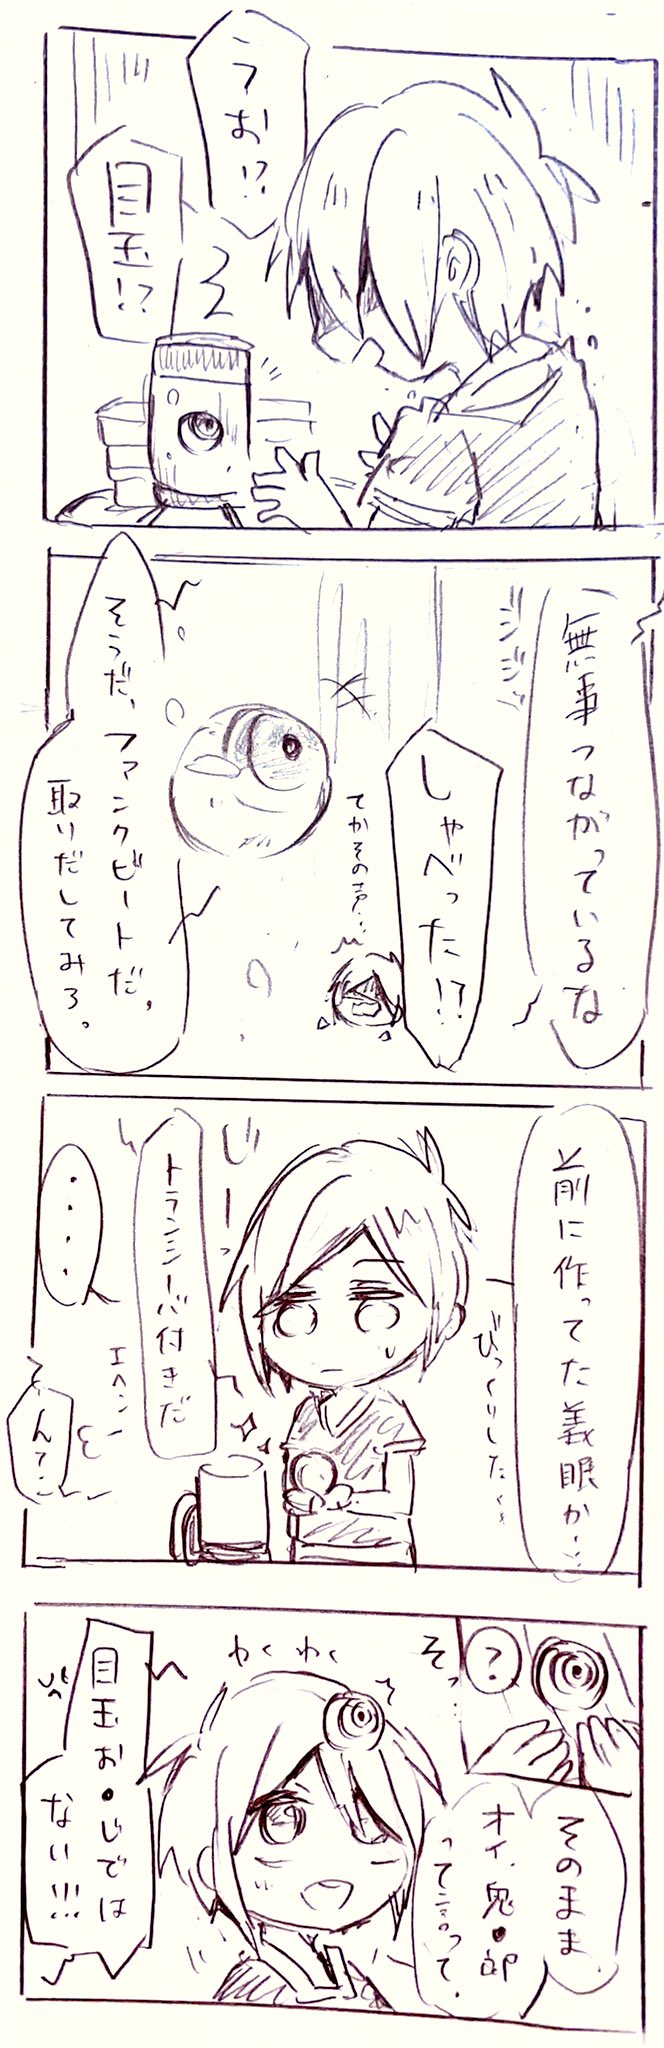 うお!?
目玉!?
無事つながっているな
ジジジ
しゃべった!?
てかその声…
そうだ、ファンクビートだ、
取りだしてみろ。
前に作ってた義眼か…
びっくりした〜
じーっ
トランシーバ付きだ
エヘン
・・・・
そっ…
?
そのまま
オイ、鬼●郎
って言って。
わくわく
目玉お●じでは
ない!!!